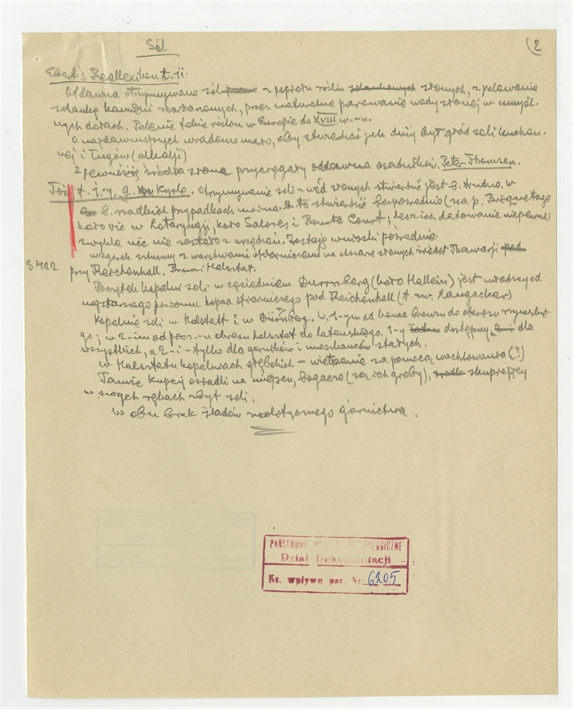 Sól
2
Ebert's Reallexikon t. ii.
Oddawna otrzymywano sól z popiołu roślin słonych, z polewania
solanką kamieni rozżarzonych, przez naturalne parowanie wody słonej w umyśl-
nych dołach. Palenie takie roślin w Europie do XVIII w.
O najdawniejszych wiadomo mało, aby stwierdzić jak duży był głód soli kuchen-
nej i ługów (alkalji)
z pewnością źródła słone przyciągały oddawna osadników. Peter Thomsen.
Toż t. j. y. g. Kyrle. Otrzymywanie soli z wód słonych stwierdzić jest b. trudno. w
b. rzadkich przypadkach można to stwierdzić bezpośrednio (na p. Briquetage
koło vic w Lotaryngji, koło Salares i Bourto Court; lecz ich datowanie niepewne)
zwykle nic nie zostało z urządzeń. Zostają wnioski pośrednie
wzgórek sztuczny z warstwami otwornicami na obszarze słonych źródeł Bawarji
S 422
przy Reichenhall, Brunn i Halsstat.
Początek kopalni soli w sąsiednim Dürrnberg (koło Hallein) jest młodszy od
najstarszego poziomu kopca otwornicznego pod Reichenhall (t. zw. Langacker)
Kopalnie soli w Halstatt i w Dürrnberg. w 1-ym od końca bronzu do okresu rzymskie-
go; w 2-im od pocz. okresu halsztat. do lateńskiego. 1-y dostępny dla
wszystkich, a 2-i - tylko dla górników i mieszkańców stałych.
w Halstattu kopalniach głębokich - wietrzenie za pomocą wachlowania (?)
Tamże kupcy osiadli na miejscu, bogacze (są ich groby), skupiający
w swych rękach zbyt soli.
w obu brak śladów neolitycznego górnictwa.
PAŃSTWOWE
Dział Dokumentacji
Ks. wpływu poz. Nr. 6205